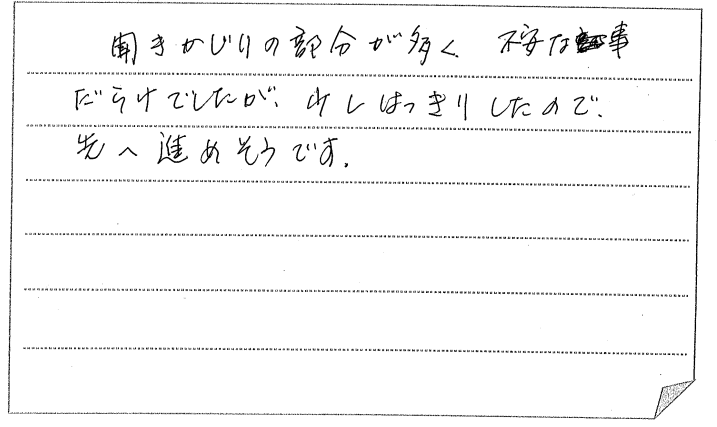 聞きかじりの部分が多く、不安な事
だらけでしたが、少しはっきりしたので、
先へ進めそうです。